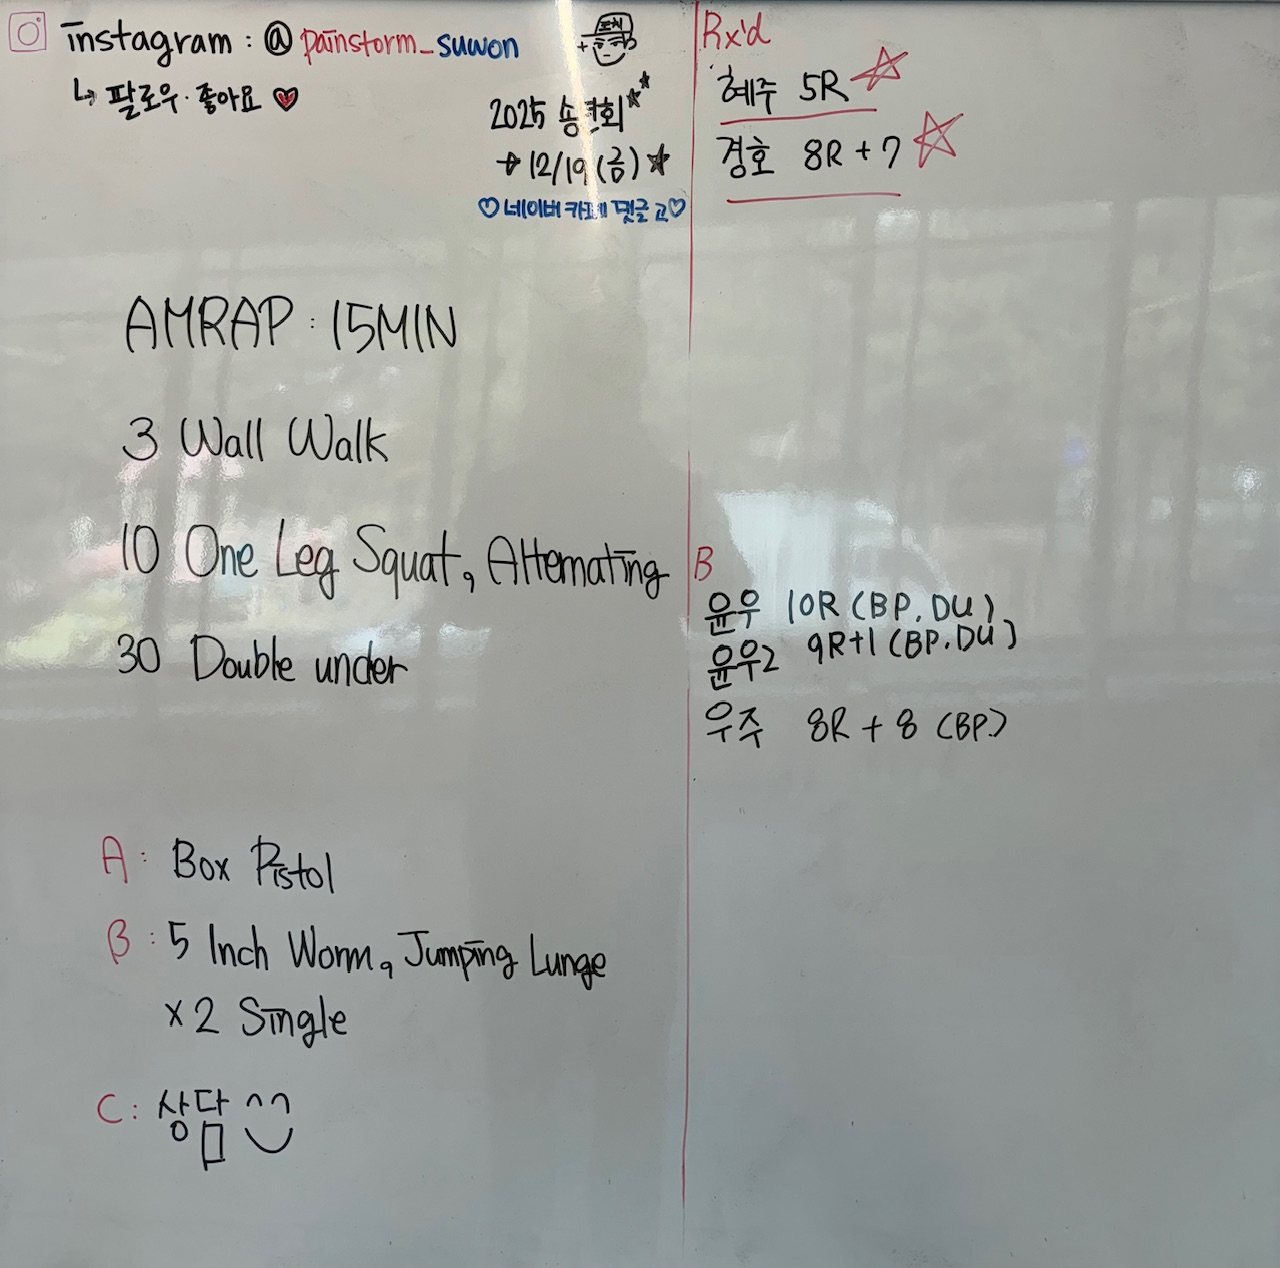 instagram : @ painstorm_suwon
↳ 팔로우·좋아요 ♥
2025 송년회 ★★
→ 12/19 (금) ★
♡ 네이버 카페 댓글 고 ♡
AMRAP : 15MIN
3 Wall Walk
10 One Leg Squat, Alternating
30 Double under
A : Box Pistol
B : 5 Inch Worm, Jumping Lunge
x2 Single
C : 상담 ^^
Rx'd
혜주 5R ☆
경호 8R + 7 ☆
B
윤우 10R (BP, DU)
윤우2 9R+1 (BP, DU)
우주 8R + 8 (BP)